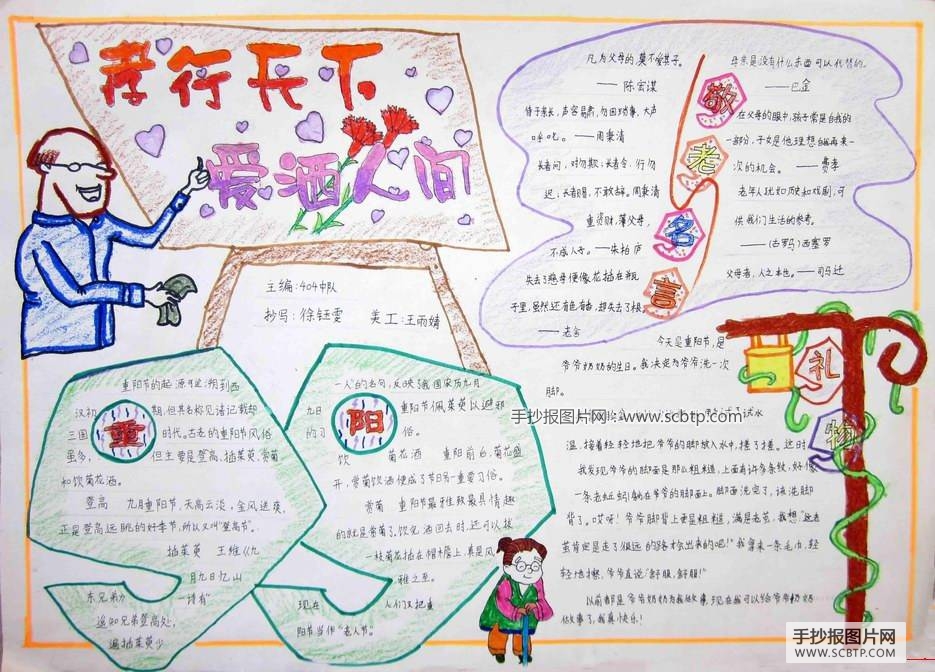 孝行天下
爱洒人间
主编:404中队
抄写:徐钰雯 美工:王雨婧
敬老名言
凡为父母的莫不爱其子。
——陈宏谋
侍于亲长,声容易肃,勿因琐事,大声
呼叱。——周秉清
长者问,对勿欺;长者令,行勿
迟;长者赐,不敢辞。周秉清
重资财,薄父母,
不成人子。——朱柏庐
失去了慈母便像花插在瓶
子里,虽然还有色有香,却失去了根
——老舍
母亲是没有什么东西可以代替的。
——巴金
在父母的眼中,孩子常是自我的
一部分,子女是他理想自我再来一
次的机会。——费孝
老年人犹如历史和戏剧,可
供我们生活的参考。
——(古罗马)西塞罗
父母者,人之本也。——司马迁
重
重阳节的起源可追溯到西
汉初期,但其名称见诸记载却
三国时代。古老的重阳节风俗
虽多,但主要是登高,插茱萸,赏菊
和饮菊花酒。
登高 九月重阳节,天高云淡,金风送爽,
正是登高远眺的好季节,所以又叫"登高节"。
插茱萸 王维《九
月九日忆山
东兄弟》一诗有"
遥知兄弟登高处,
遍插茱萸少
阳
一人"的名句,反映了我国农历九月
九日重阳节佩茱萸以避邪
的习俗。
饮菊花酒 重阳前后,菊花盛
开,赏菊饮酒便成了节日另一重要习俗。
赏菊 重阳节最雅致最具情趣
的就是赏菊了,饮完酒回去时,还可以拔
一枝菊花插在帽木檐上,真是风
雅之至。
现在人们又把重
阳节当作"老人节"。
礼物
今天是重阳节,是
爷爷奶奶的生日。我决定为爷爷洗一次
脚。
试水
温,接着轻轻地把爷爷的脚放入水中,搓了搓。这时
我发现爷爷的脚面是那么粗糙,上面有许多条纹,好像
一条老蚯蚓躺在爷爷的脚面上。脚面洗完了,该洗脚
背了。哎呀!爷爷脚背上更是粗糙,满是老茧,我想"这老
茧肯定是走了很远的路才会出来的吧!"我拿来一条毛巾,轻
轻地擦,爷爷直说"舒服,舒服!"
以前都是爷爷奶奶为我做事,现在我可以给爷爷奶奶
做事了,我真快乐!
手抄报图片网:www.scbtp.com
手抄报图片网
WWW.SCBTP.COM